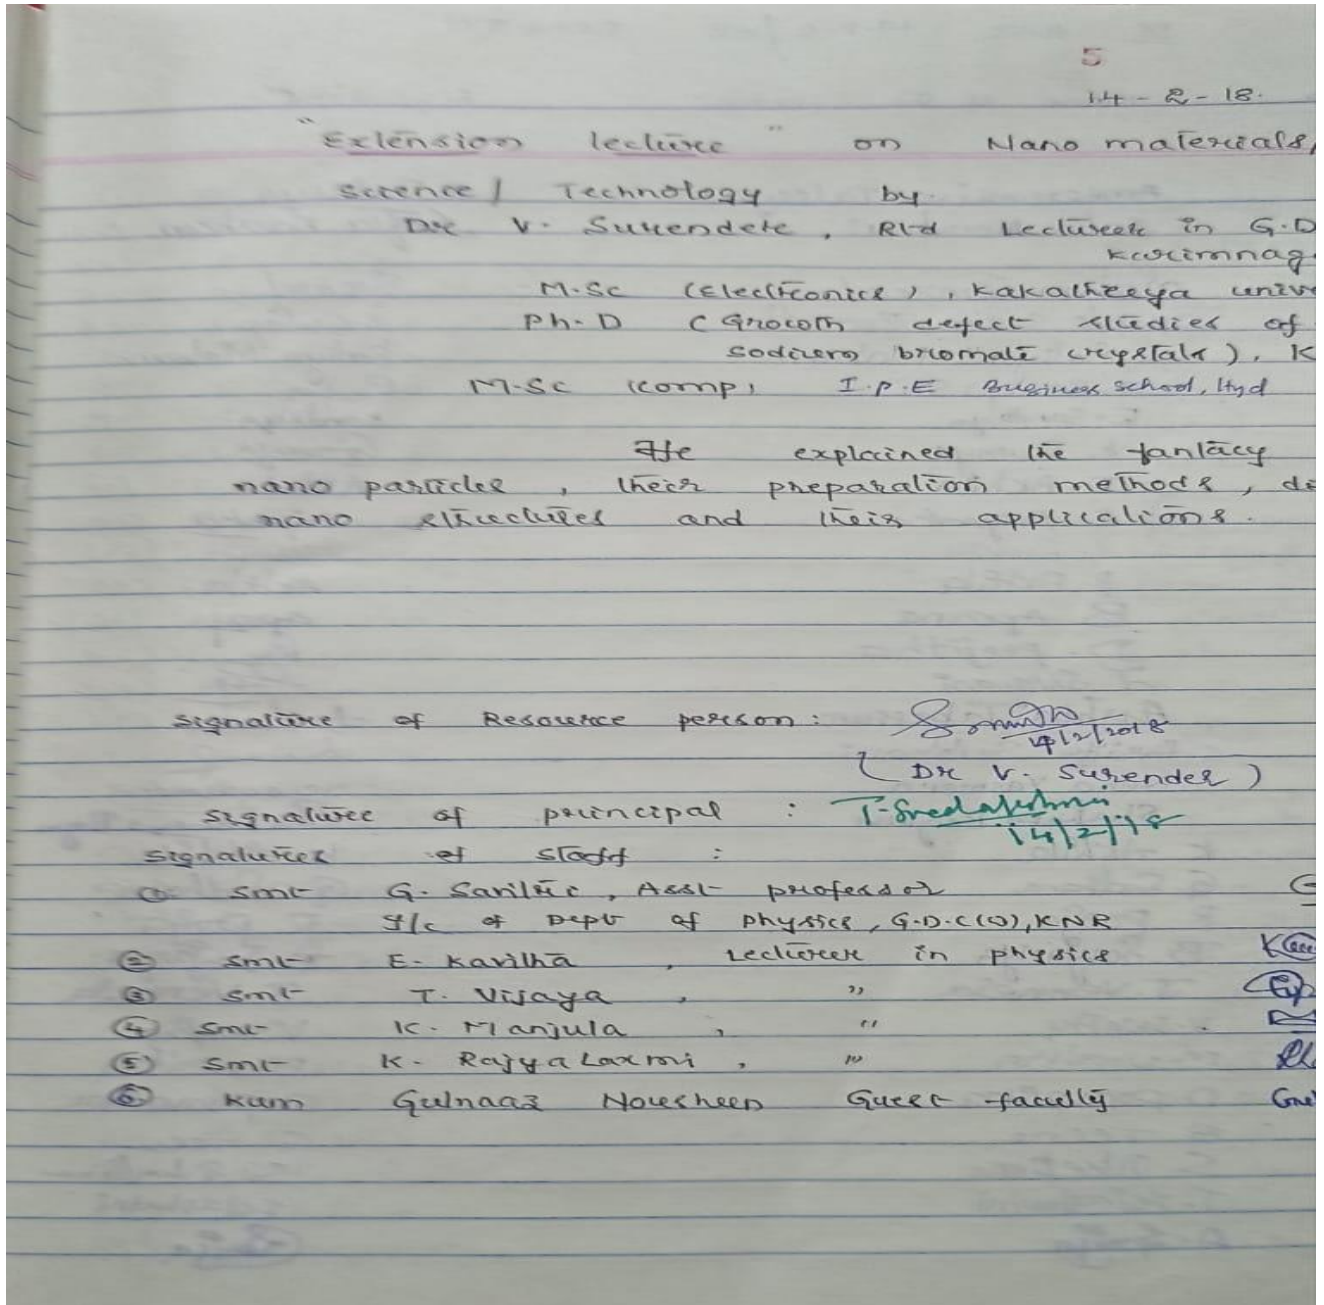 5
14-2-18.
"Extension lecture" on Nano materials,
Science / Technology by
Dr V. Surender, Rtd Lecturer in G.D
Karimnag
M.Sc (Electronics), Kakatheeya univ
Ph.D (Growth defect studies of
sodium bromate crystals), K
M.Sc (comp), I.P.E Business School, Hyd
He explained the fantacy
nano particles, their preparation methods, di
nano structures and their applications.
Signature of Resource person :
14/2/2018
(Dr V. Surender)
Signature of principal : T. Sreelakshmi
14/2/18
Signatures of staff :
① Smt G. Saritha, Asst professor
I/c of Dept of physics, G.D.C(W), KNR
② Smt E. Kavitha, Lecturer in physics
③ Smt T. Vijaya, "
④ Smt K. Manjula, "
⑤ Smt K. Rajya Laxmi, "
⑥ Kum Gulnaaz Nousheen Guest faculty